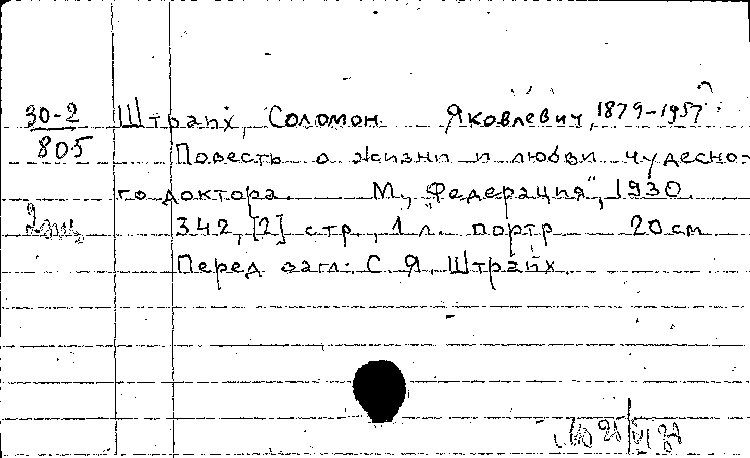 30-2 Штрайх, Соломон Яковлевич, 1879-1957
805 Повесть о жизни и любви чудесно-
го доктора. М., "Федерация", 1930.
2экз 342, [2] стр., 1 л. портр 20 см
Перед загл: С. Я. Штрайх.